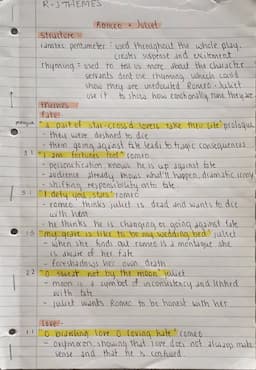 R-J THEMES
Romeo + Juliet
structure
iambic pentameter: used throughout the whole play.
creates suspense and excitement
rhyming: used to tell us more about the character
servants dont use rhyming which could
show they are uneducated. Romeo + Juliet
use it to show how emotionally tune they are
themes
Fate:
prologue "a pair of star-cross'd lovers take their life" prologue
- they were destined to die
- them going against fate leads to tragic consequences
3 1 "I am fortunes fool" romeo
- personification knows he is up against fate
- audience already knows what'll happen, dramatic irony
- shifting responsibility onto fate.
5 1 "I defy you stars" romeo
- romeo thinks juliet is dead and wants to die
with her.
- he thinks he is changing or going against fate
1 5 "my grave is like to be my wedding bed" juliet
- when she finds out romeo is a montague she
is aware of her fate
- foreshadows her own death
2 2 "O swear not by the moon" juliet
- moon is a symbol of inconsistency and linked
with fate
- juliet wants Romeo to be honest with her
love-
1 1 "O brawling love O loving hate" romeo
- oxymoron, showing that love does not always make
sense and that he is confused.